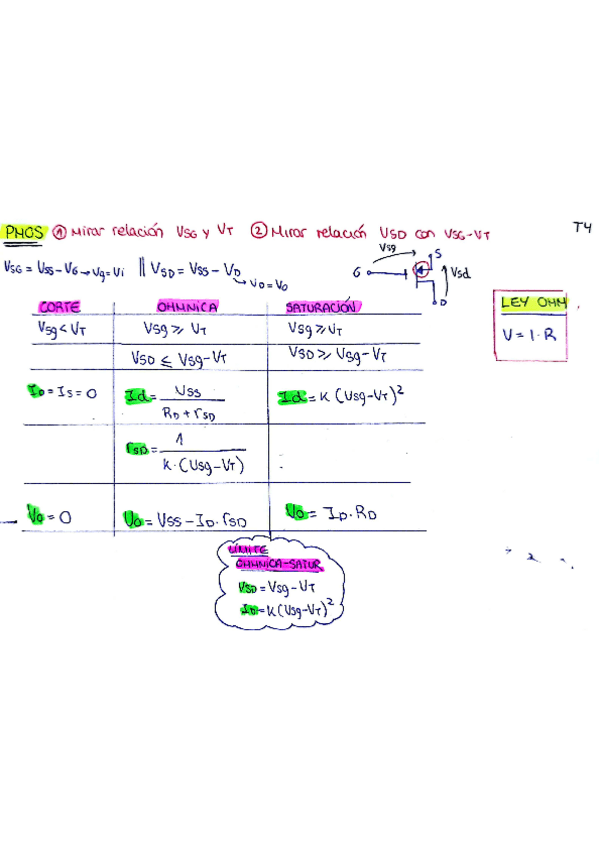 PMOS ① Mirar relación VSG y VT ② Mirar relación VSD con VSG-VT T4
VSG = VSS - VG → Vg = Vi || VSD = VSS - VD
→ VD = VO
Vsg
S
G
Vsd
D
CORTE OHMNICA SATURACIÓN
Vsg < VT Vsg ⩾ VT Vsg ⩾ VT
VSD ≤ Vsg-VT VSD ⩾ Vsg-VT
ID = IS = 0 Id = VSS / (RD + rSD) Id = K (Vsg-VT)²
rSD = 1 / (K·(Vsg-VT))
VO = 0 VO = VSS - ID·rSD VO = ID·RD
LEY OHM
V = I·R
LÍMITE
OHMNICA-SATUR
VSD = Vsg-VT
ID = K(Vsg-VT)²